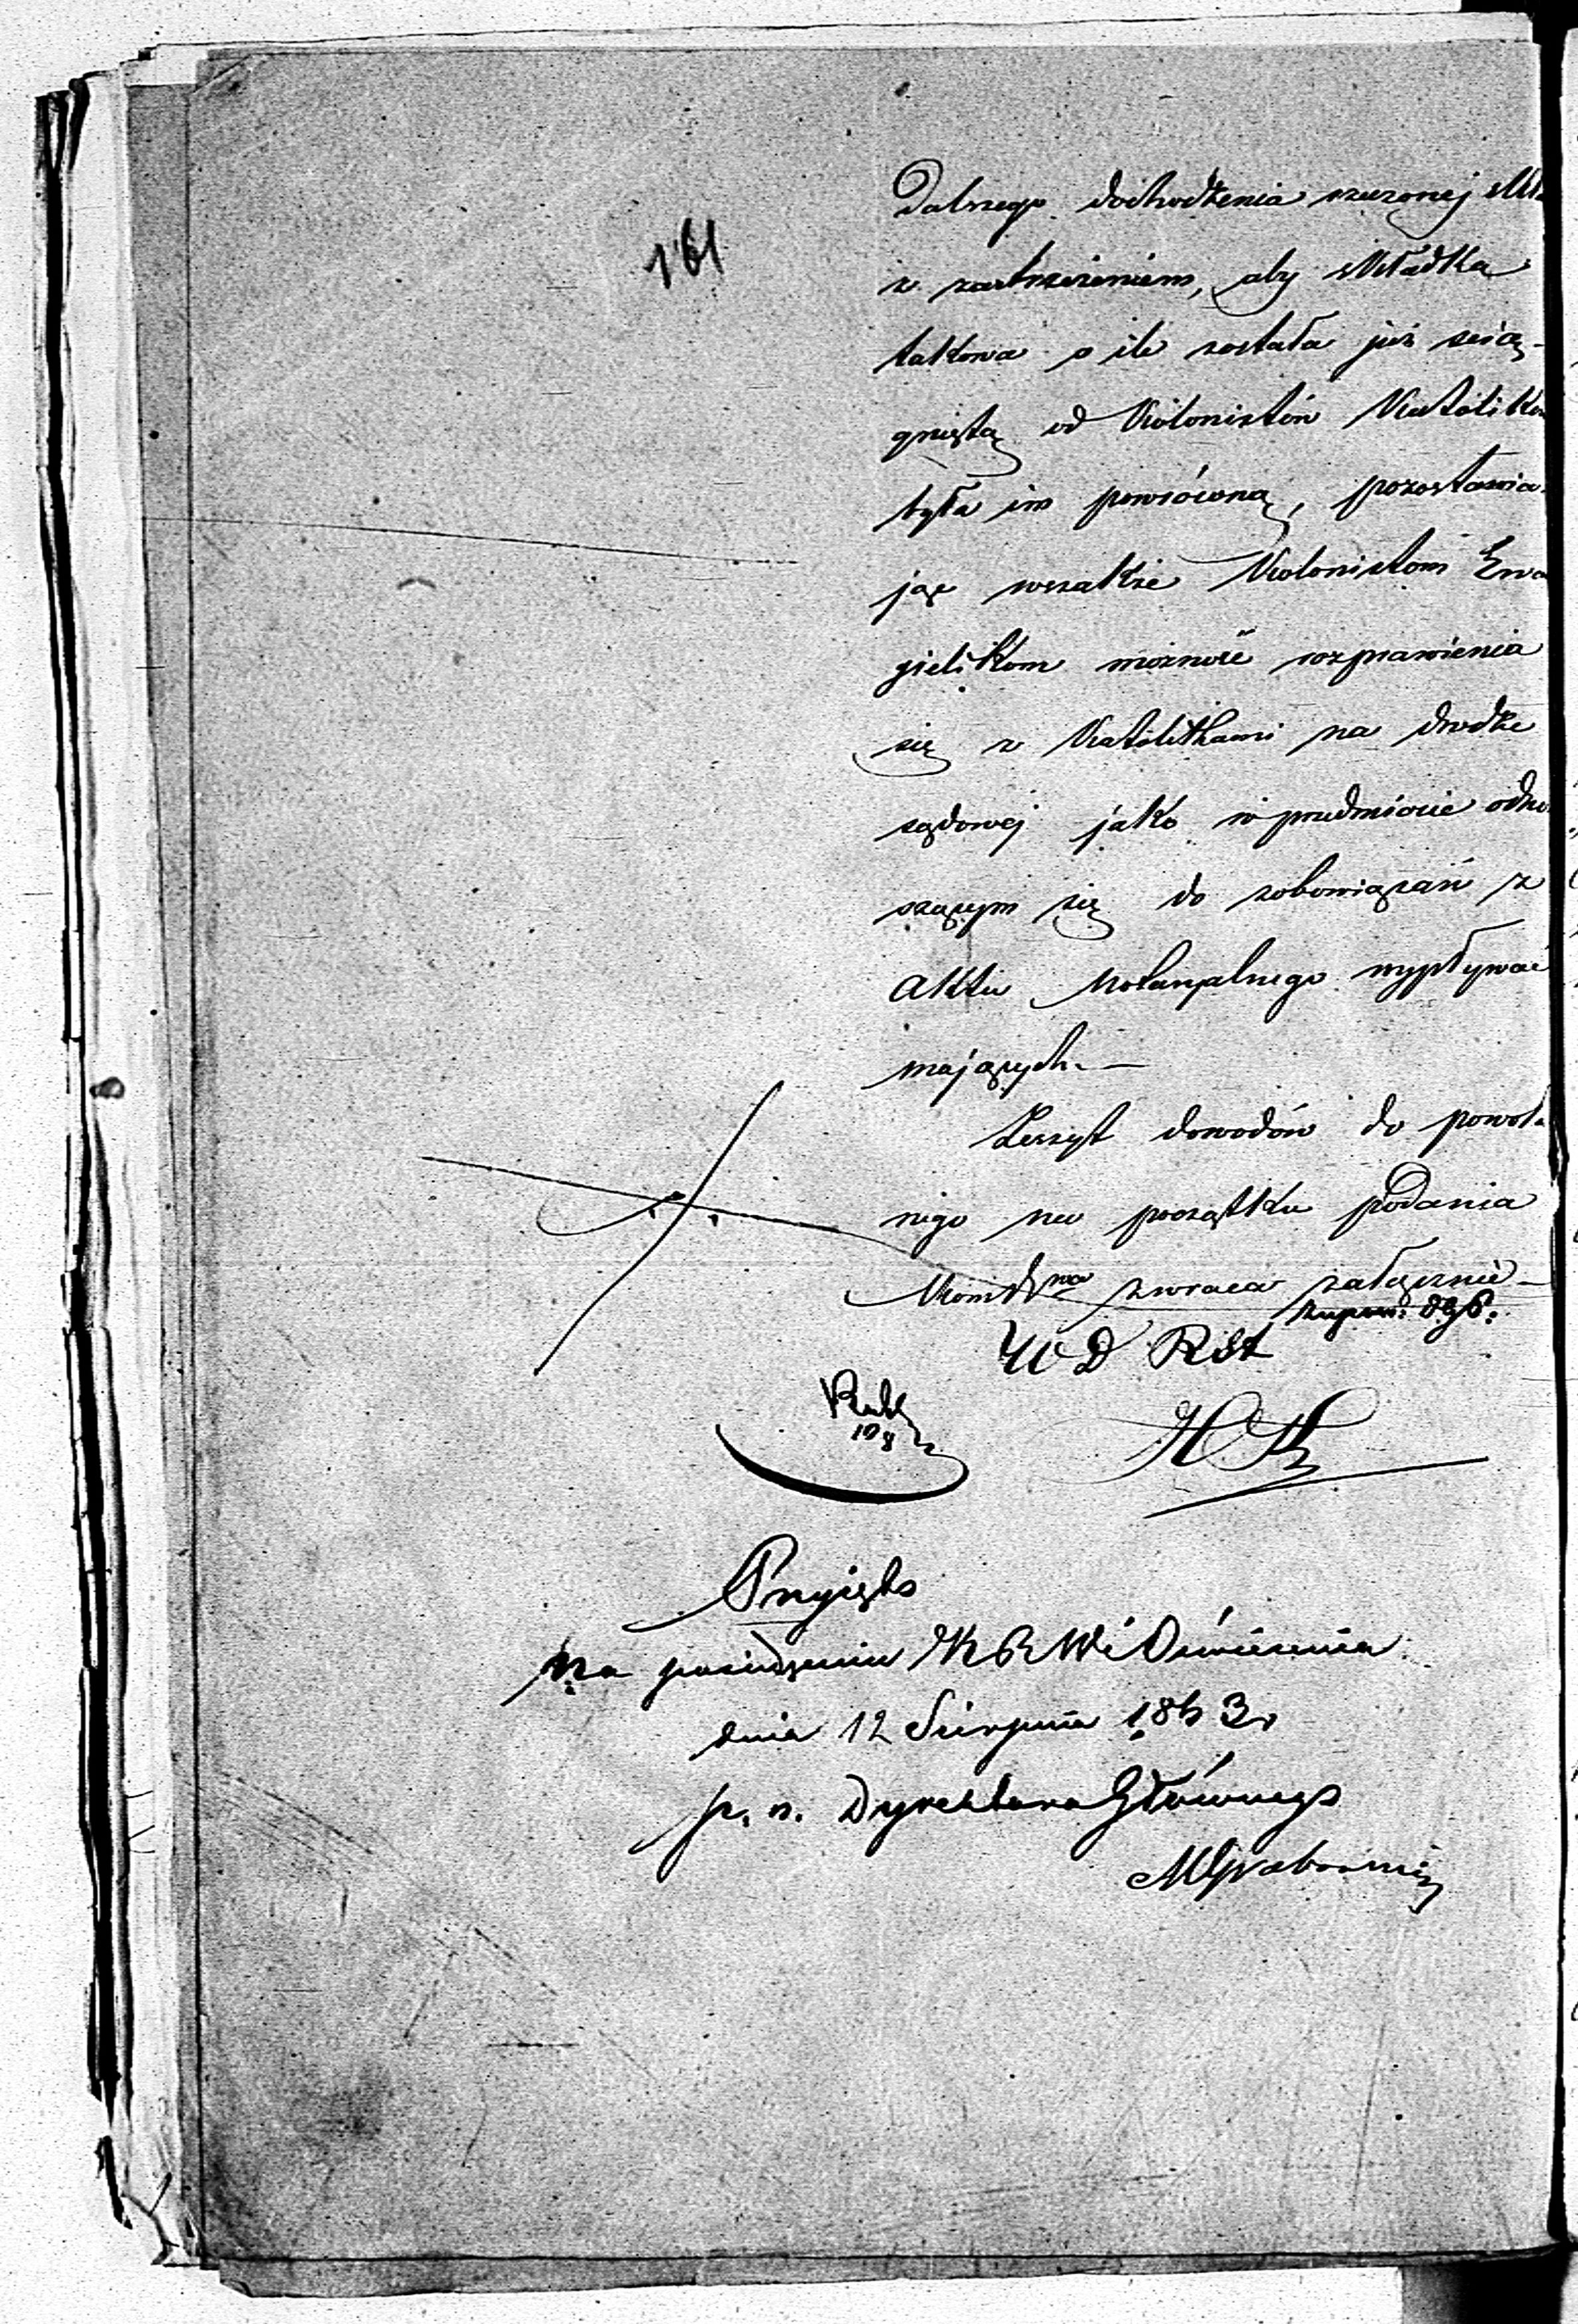 161
Dalszego dochodzenia rzeczonej skła
z zastrzeżeniem, aby składka
takowa o ile została już ścią-
gniętą od Kolonistów Katolików
była im powróconą, pozostawia-
jąc wszakże Kolonistom Ewa
gielikom możność rozprawienia
się z Katolikami na drodze
sądowej jako w przedmiocie odno
szącym się do zobowiązań z
aktu Notaryalnego wypływać
mających. —
Zeszyt dowodów do powoła
nego na początku podania
zwraca załącznie —
W D Rst
10/8
Przyjęto
Na posiedzeniu K R W i Oświecenia
dnia 12 Sierpnia 1863 r
p. o. Dyrektora Głównego